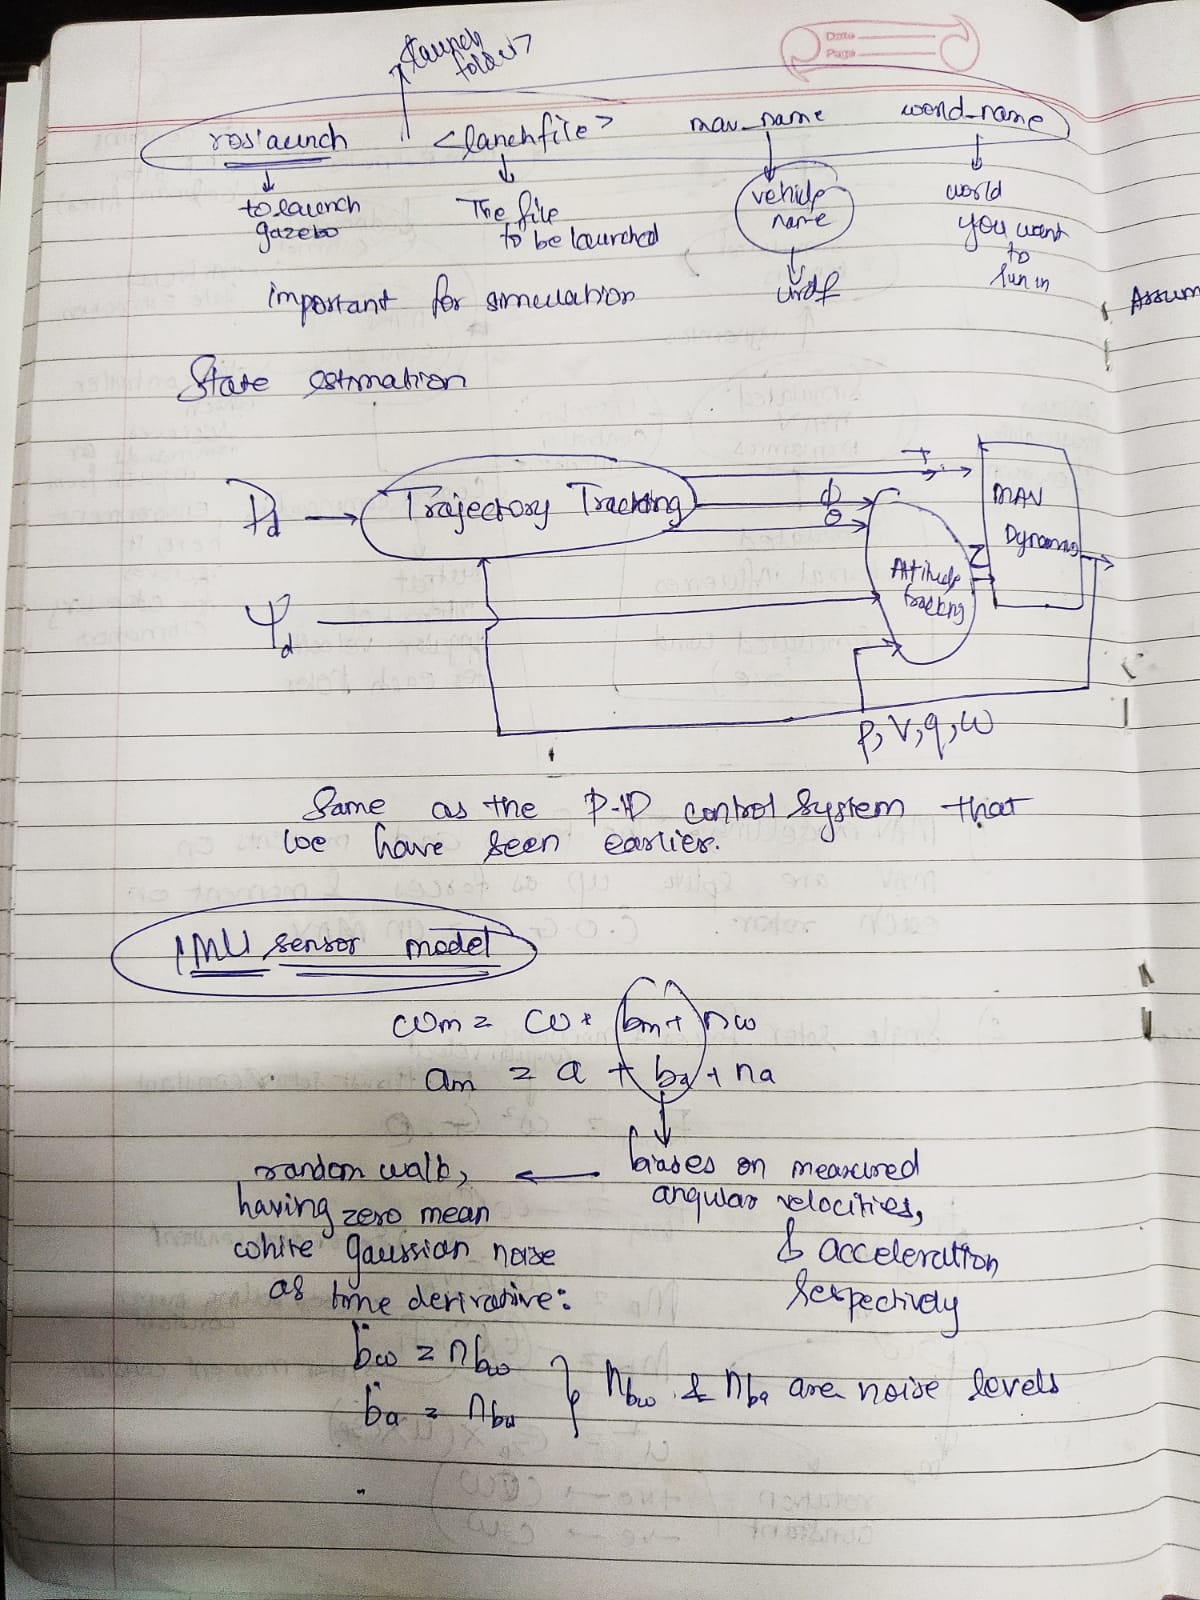 Date
Page
<launch
folder>
roslaunch <lanchfile> mav_name world_name
to launch
gazebo
The file
to be launched
vehicle
name
urdf
world
you want
to
run in
important for simulation
Assum
State estmation
Pd → Trajectory Tracking
T
ϕ
θ
MAV
Dynamics
Attitude
tracking
τ
ψd
p, v, q, ω
Same as the P-ID control system that
we have seen earlier.
IMU sensor model
ωm = ω + bm + nω
am = a + ba + na
biases on measured
angular velocities,
& acceleration
respectively
random walk,
having zero mean
white gaussian noise
as time derivative:
ḃω = nbω
ḃa = nba
nbω & nba are noise levels